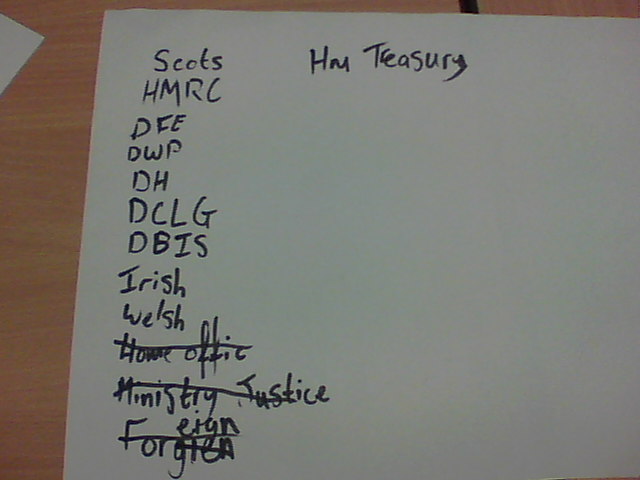 Scots Hm Treasury
HMRC
DFE
DWP
DH
DCLG
DBIS
Irish
Welsh
Home offic
Ministry Justice
Foreign